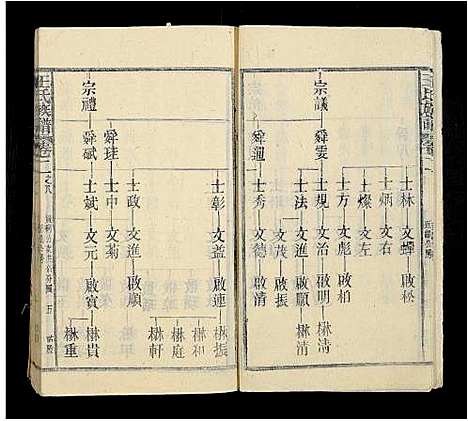 宗議
舜雯
舜週
士林 文蟬 啟松
士炳 文右
士燦 文左
士方 文彪 啟柏
士規 文治 啟明 楙清
士法 文進 啟順 楙清
文茂 啟振
士秀 文德 啟清
王氏族譜
宗禮
舜珪
舜斌
士彰 文益 啟連 楙振
楙和
楙庭
士政 文進 啟順 楙軒
士中 文菊
士斌 文元 啟賓 楙貴
楙重
王氏族譜 卷
五